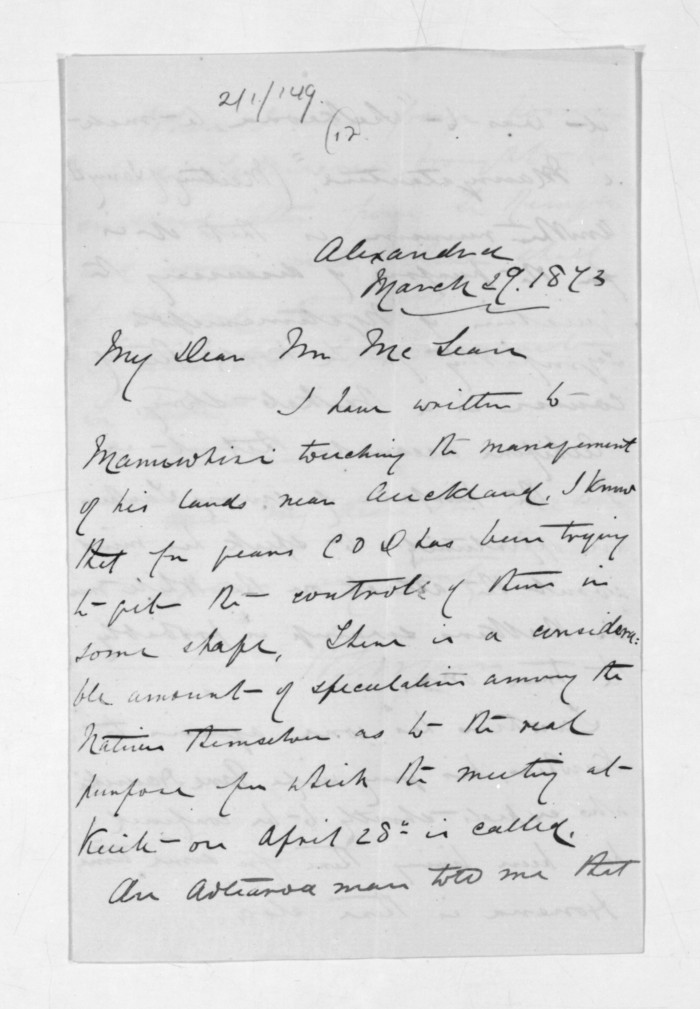 2/1/149.
(12
Alexandra
March 29. 1873
My Dear Mr McLean
I have written to
Manuwhiri touching the management
of his lands near Auckland. I know
that for years C O D has been trying
to get the control of them in
some shape, There is a considera:
ble amount of speculation among the
Natives themselves as to the real
purpose for which the meeting at
Kuiti on April 28th is called.
An Aotearoa man told me that